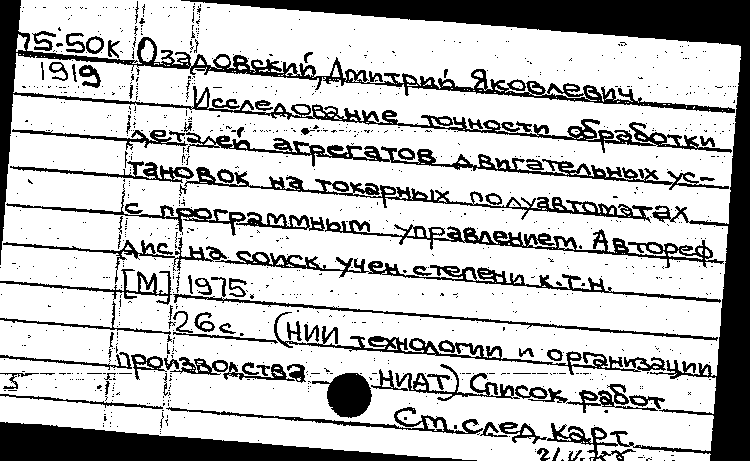 75-50К Озадовский, Дмитрий Яковлевич.
1919
Исследование точности обработки
деталей агрегатов двигательных ус-
тановок на токарных полуавтоматах
с программным управлением. Автореф.
дис. на соиск. учен. степени к.т.н.
[М.] 1975.
26с. (НИИ технологии и организации
производства НИАТ) Список работ
Ст. след. карт.